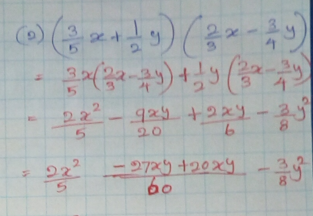 (2) (3/5 x + 1/2 y) (2/3 x - 3/4 y)
= 3/5 x (2/3 x - 3/4 y) + 1/2 y (2/3 x - 3/4 y)
= 2x²/5 - 9xy/20 + 2xy/6 - 3/8 y²
= 2x²/5 (-27xy + 20xy)/60 - 3/8 y²